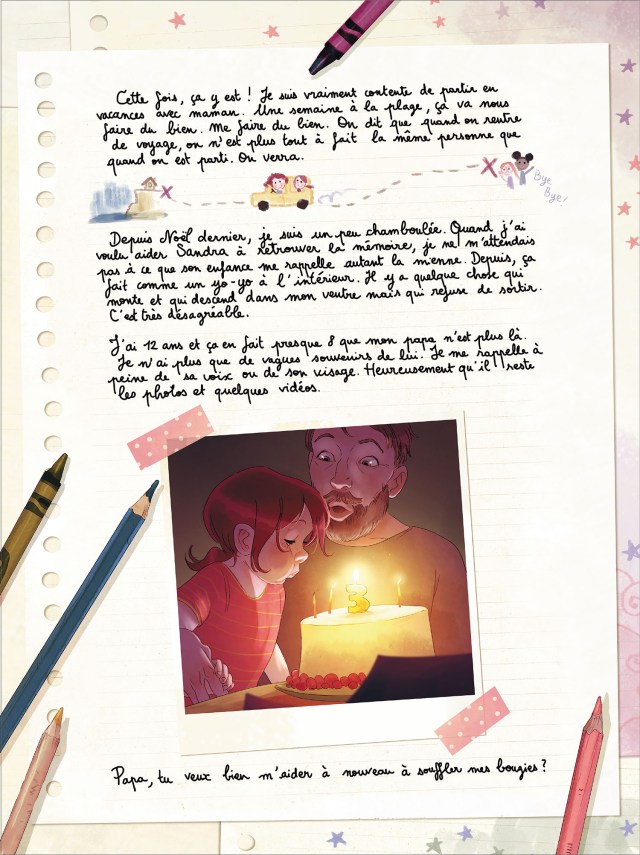 Cette fois, ça y est ! Je suis vraiment contente de partir en
vacances avec maman. Une semaine à la plage, ça va nous
faire du bien. Me faire du bien. On dit que quand on rentre
de voyage, on n'est plus tout à fait la même personne que
quand on est parti. On verra.
Bye
Bye!
Depuis Noël dernier, je suis un peu chamboulée. Quand j'ai
voulu aider Sandra à retrouver la mémoire, je ne m'attendais
pas à ce que son enfance me rappelle autant la mienne. Depuis, ça
fait comme un yo-yo à l'intérieur. Il y a quelque chose qui
monte et qui descend dans mon ventre mais qui refuse de sortir.
C'est très désagréable.
J'ai 12 ans et ça en fait presque 8 que mon papa n'est plus là.
Je n'ai plus que de vagues souvenirs de lui. Je me rappelle à
peine de sa voix ou de son visage. Heureusement qu'il reste
les photos et quelques vidéos.
3
Papa, tu veux bien m'aider à nouveau à souffler mes bougies ?